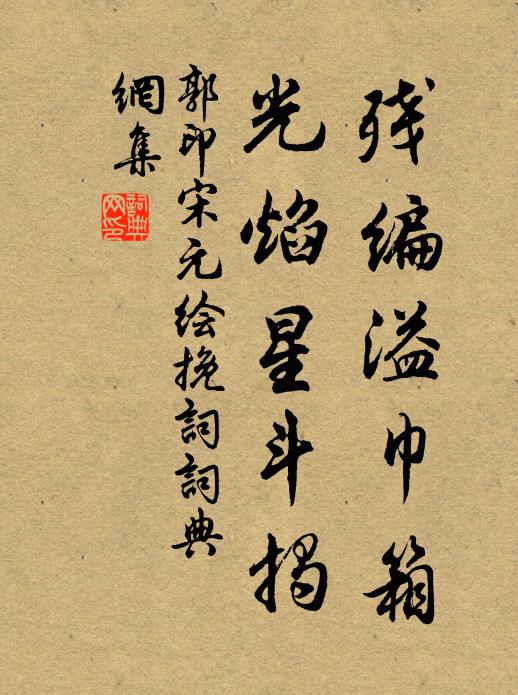 残编溢巾箱
光焰星斗揭
郭印宋元绘挽詞詞典
網集
詞典网印